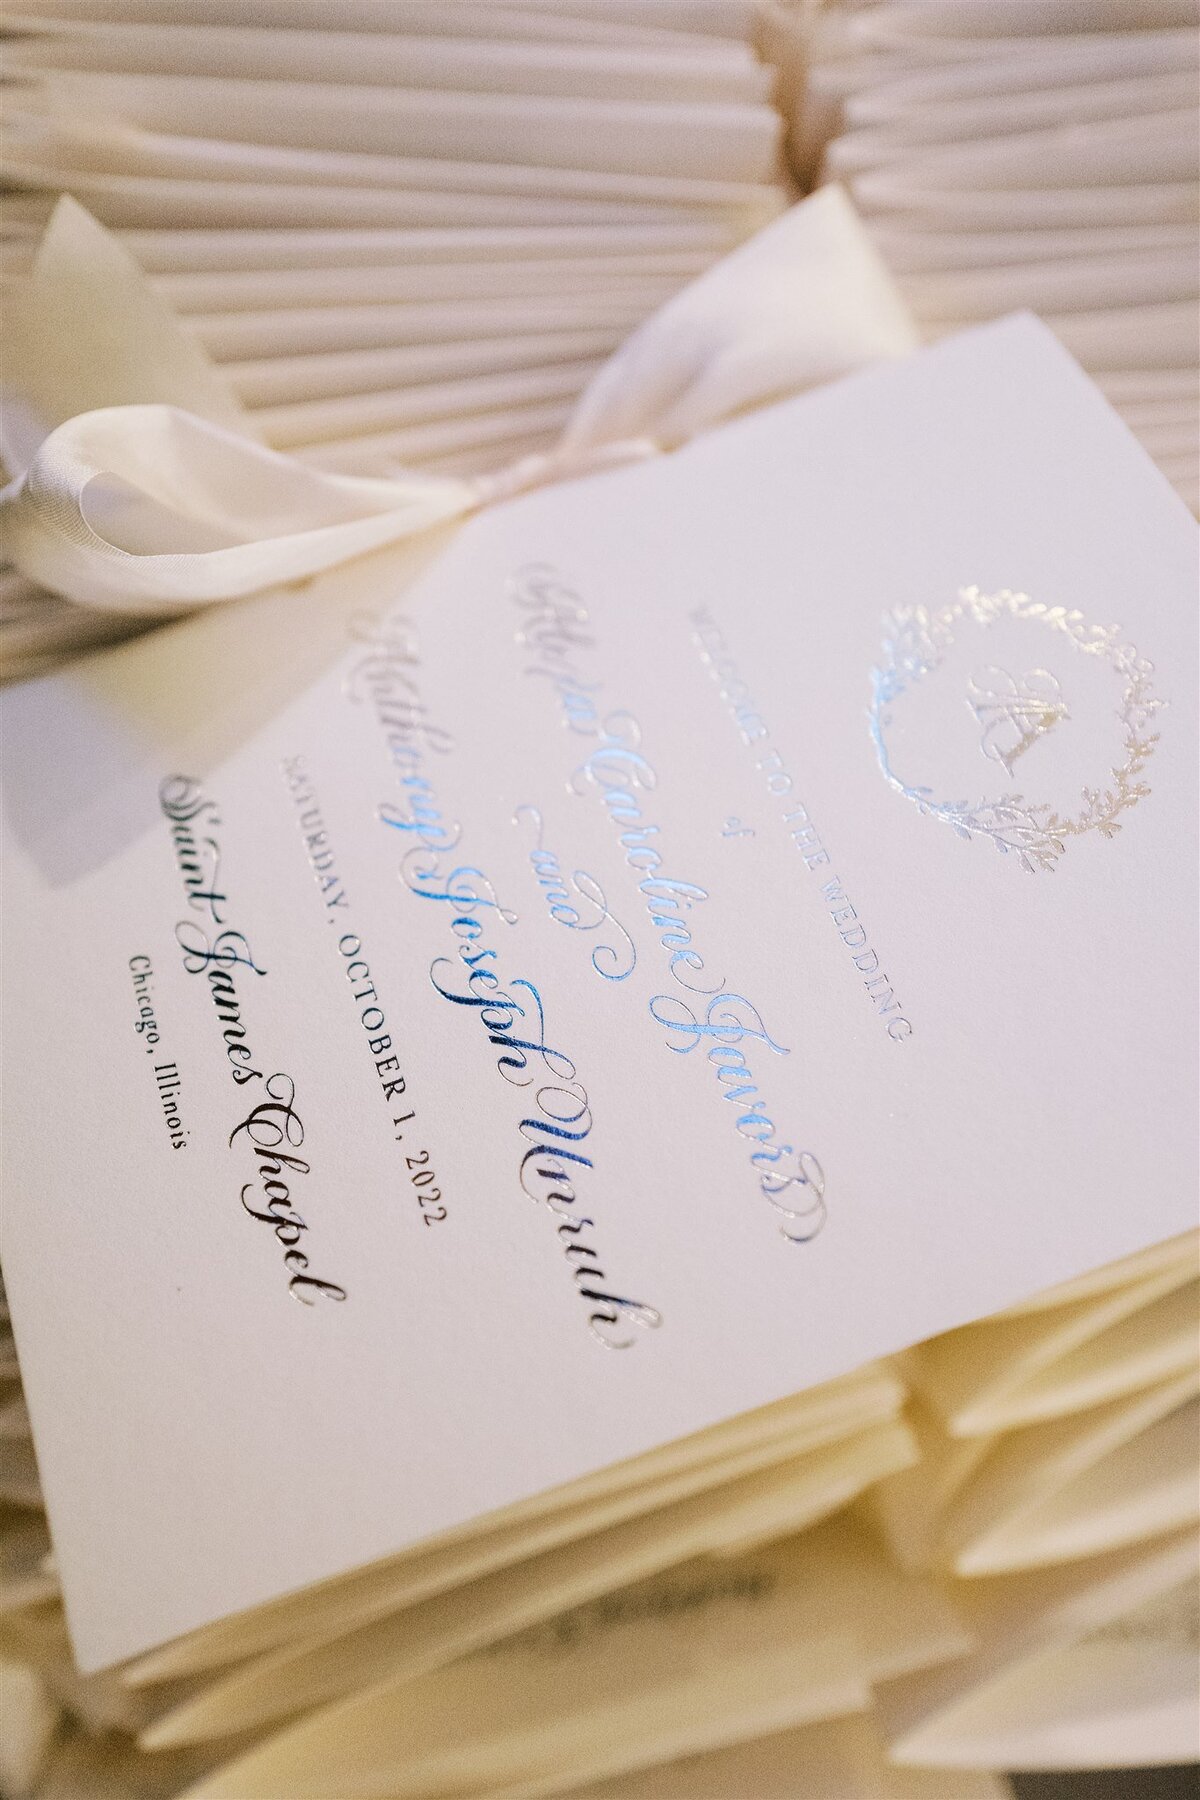 WELCOME TO THE WEDDING
of
Caroline Javors
and
Anthony Joseph Unruh
SATURDAY, OCTOBER 1, 2022
Saint James Chapel
Chicago, Illinois